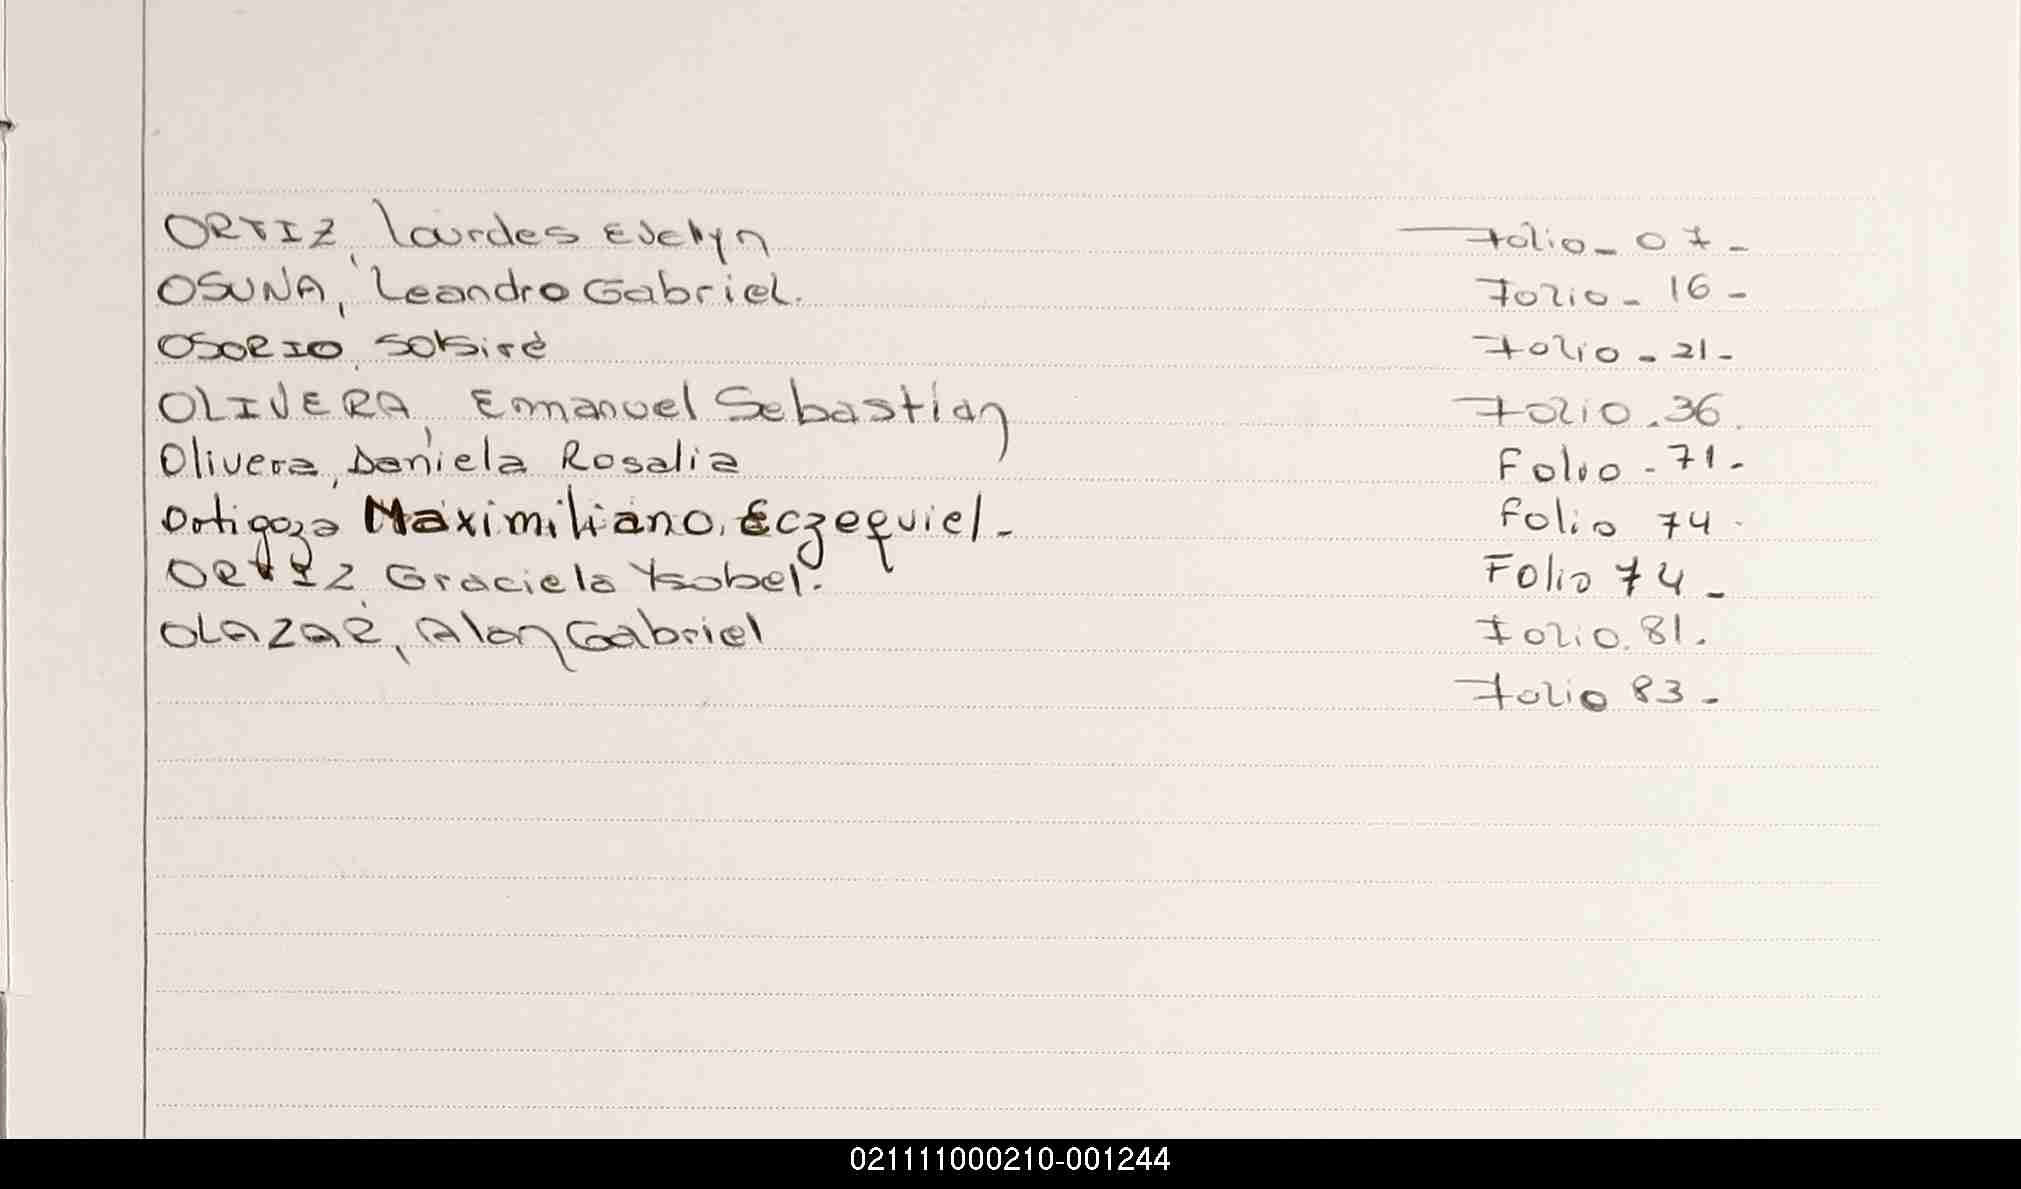 ORTIZ, Lourdes Evelyn Folio - 07 -
OSUNA, Leandro Gabriel. Folio - 16 -
OSORIO, Solsiré Folio - 21 -
OLIVERA, Emmanuel Sebastian Folio . 36.
Olivera, Daniela Rosalia Folio - 71 -
Ortigoza Maximiliano, Eczequiel - Folio 74 -
ORTIZ, Graciela Ysabel. Folio 74 -
OLAZAR, Alan Gabriel Folio. 81.
Folio 83 -
021111000210-001244